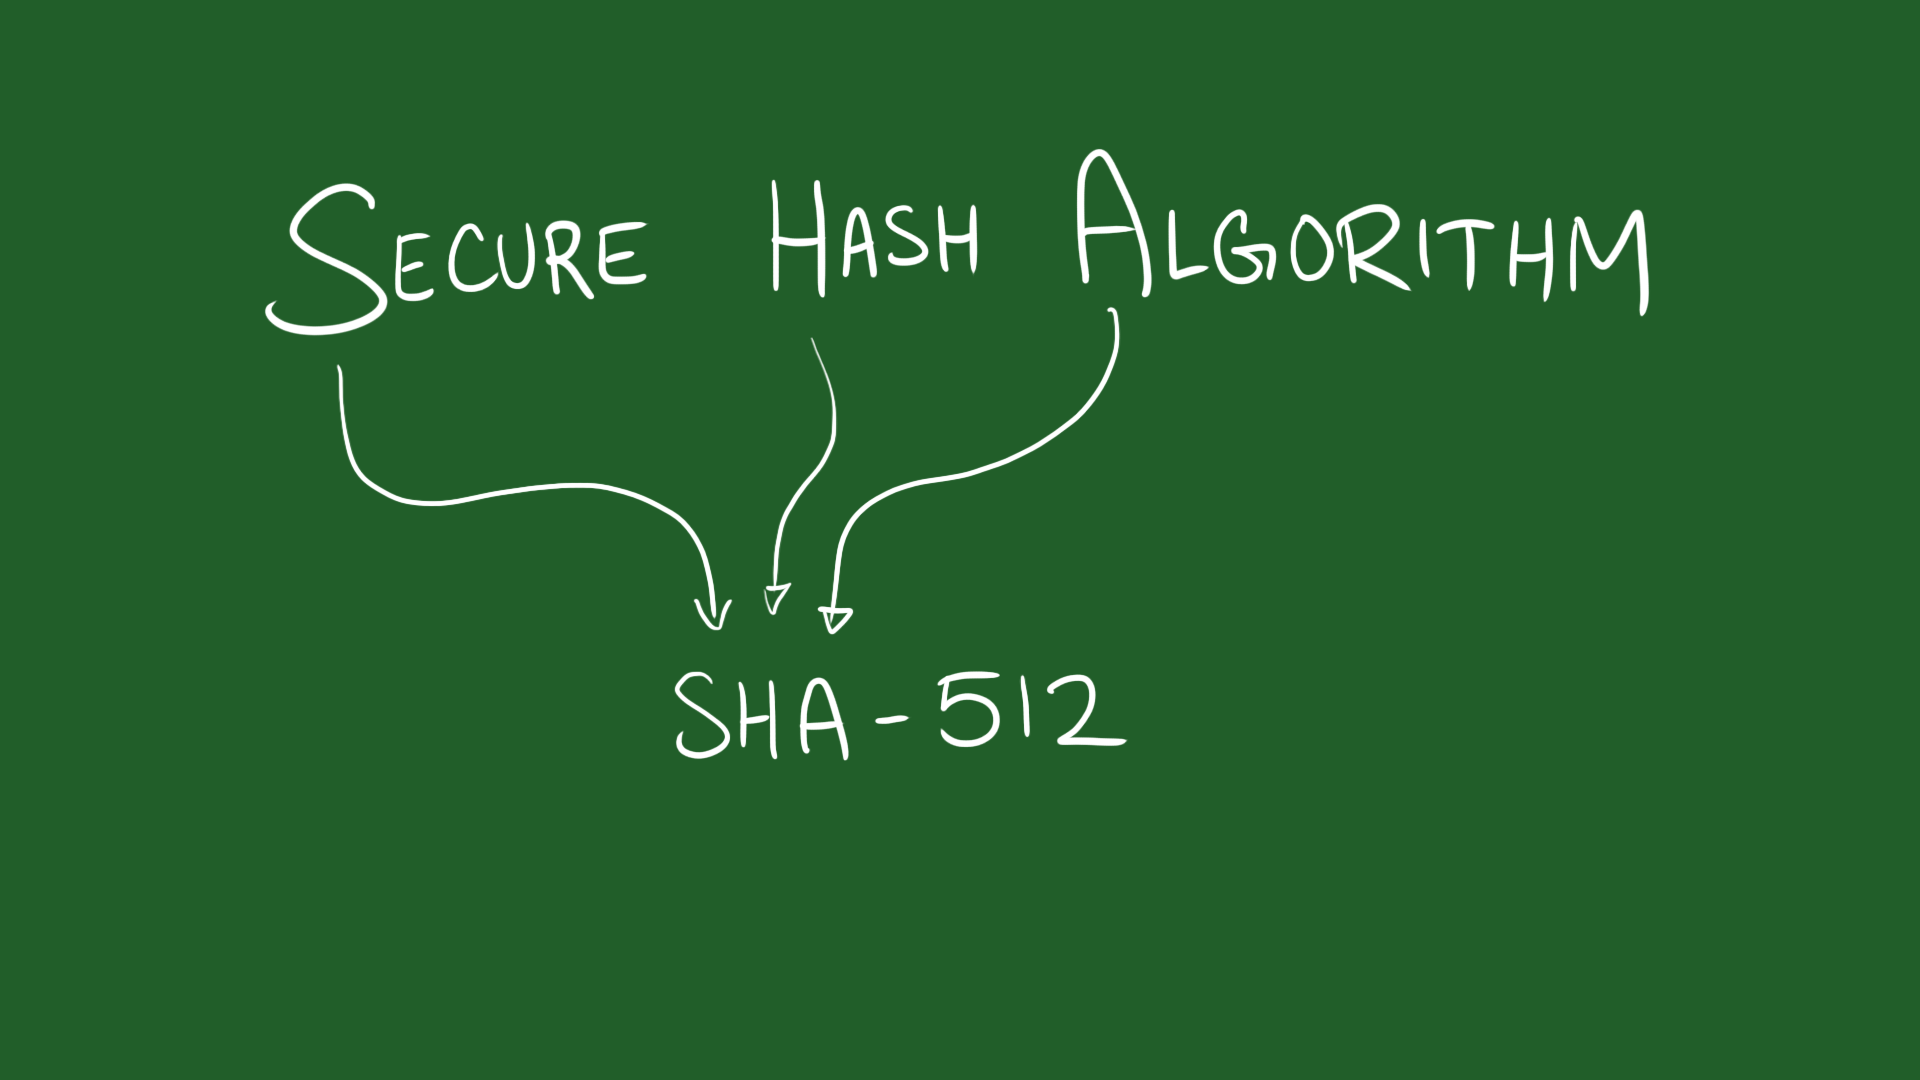 SECURE HASH ALGORITHM
SHA-512